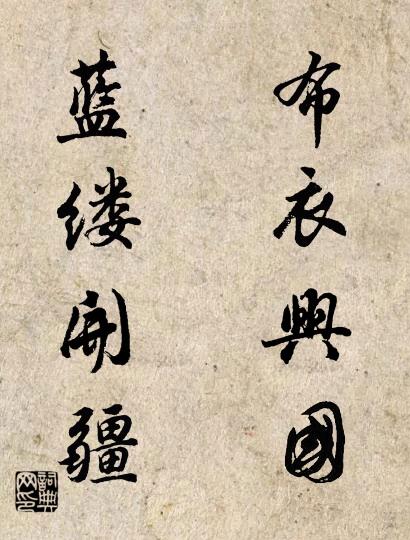 布衣興國
藍缕開疆
詞典网印